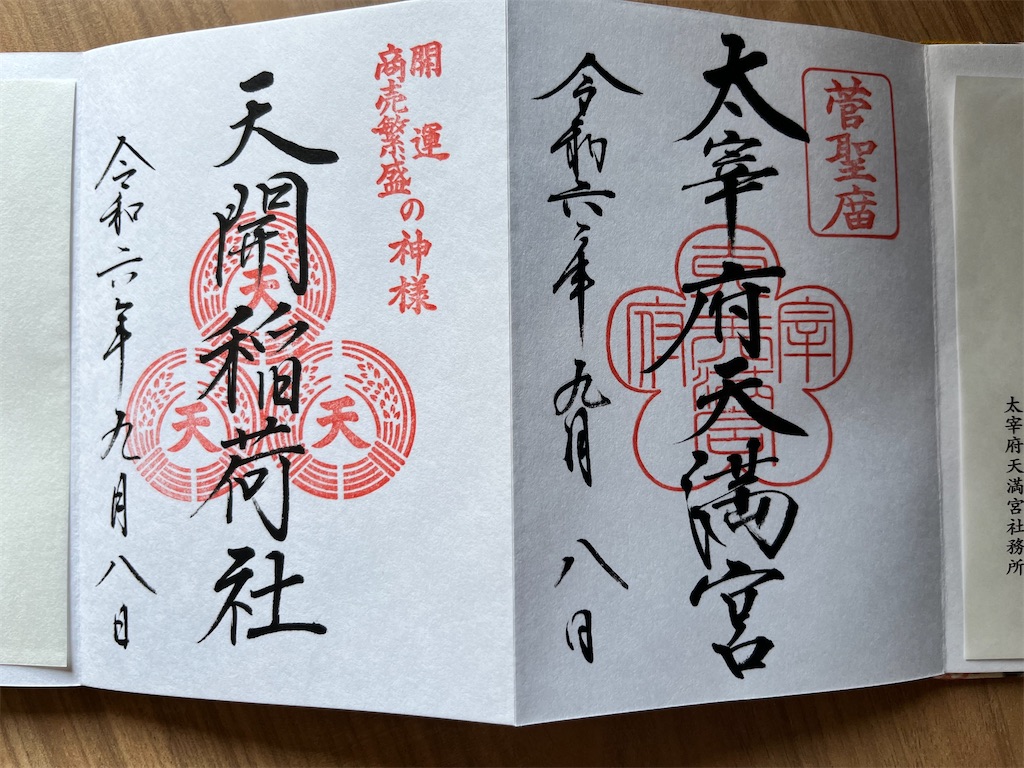 太宰府天満宮社務所
菅聖庿
太宰府天満宮
宰
府
令和六年九月八日
開運
商売繁盛
の神様
天開稲荷社
天
天
天
令和六年九月八日